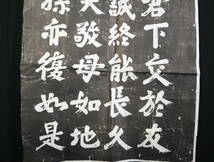 君下交於友
誠終能長久
天敬母如地
孫亦復如是